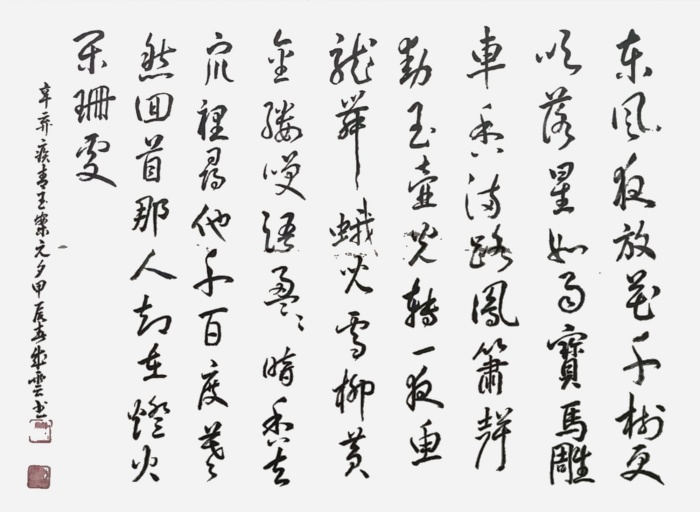 东风夜放花千树更
吹落星如雨寶馬雕
車香满路鳳簫聲
動玉壺光轉一夜魚
龍舞蛾儿雪柳黄
金縷笑語盈盈暗香去
众裡尋他千百度蓦
然回首那人却在燈火
阑珊處
辛弃疾青玉案元夕甲辰春雲书